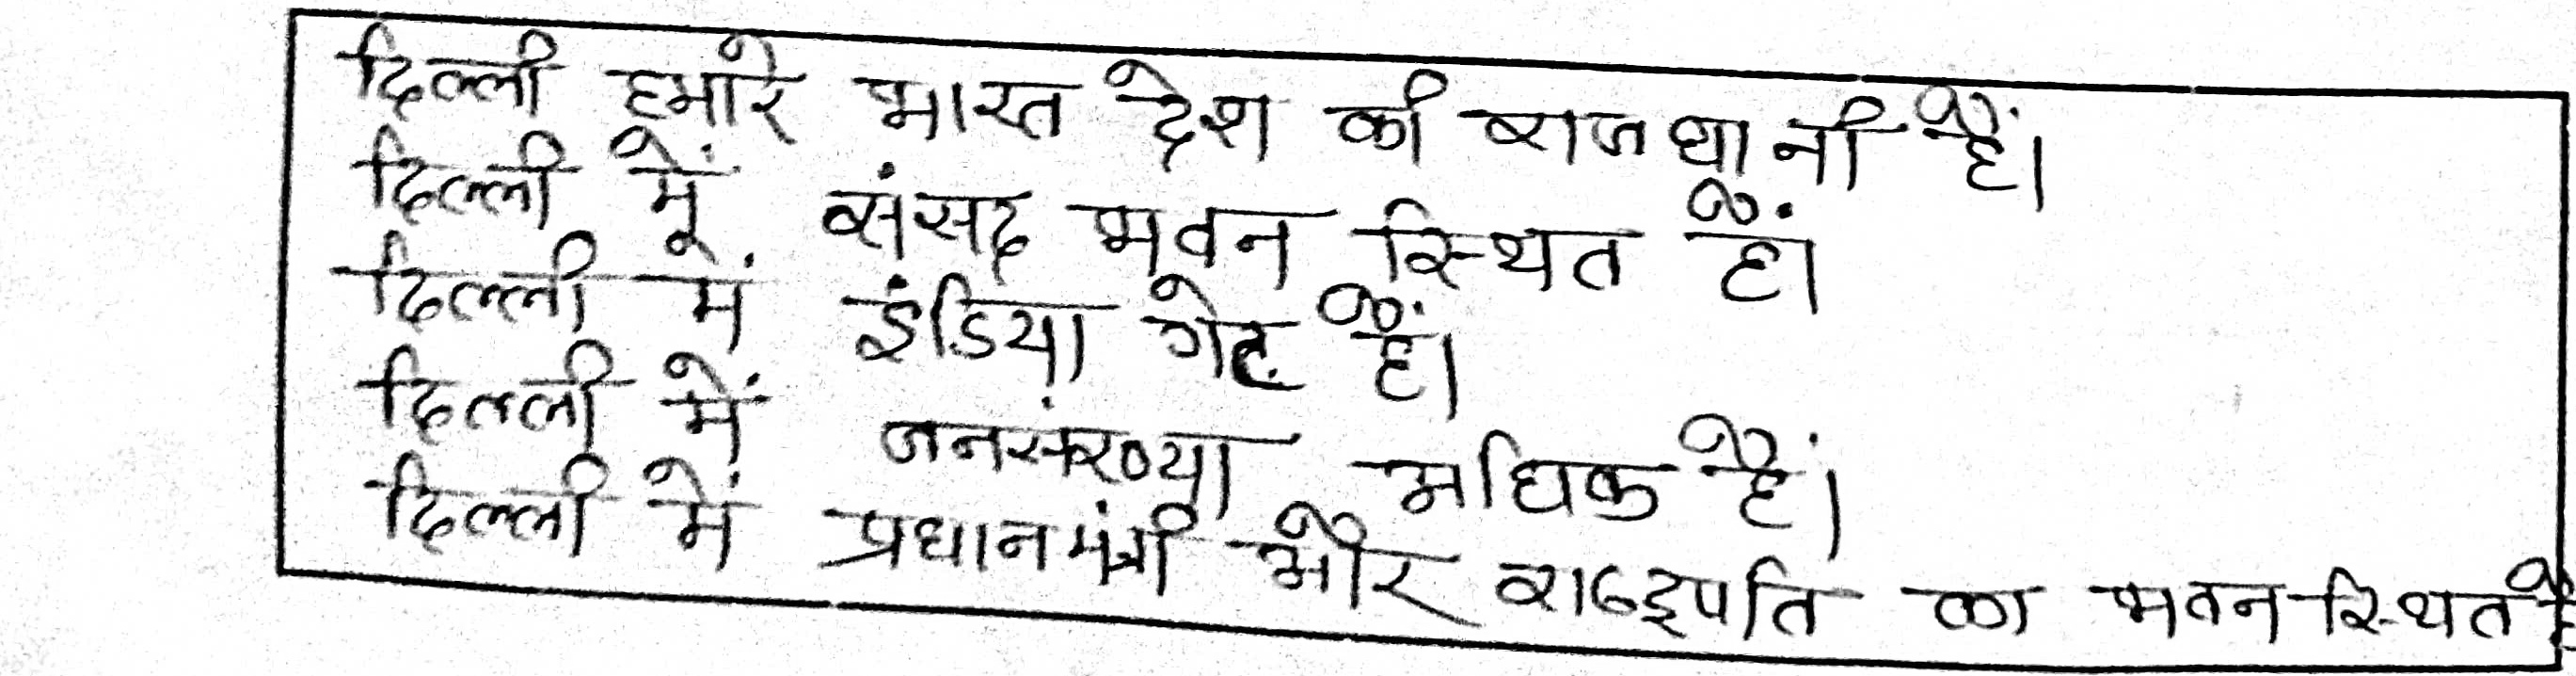 दिल्ली हमारे भारत देश की राजधानी हैं।
दिल्ली में संसद भवन स्थित हैं।
दिल्ली में इंडिया गेट हैं।
दिल्ली में जनसंख्या अधिक हैं।
दिल्ली में प्रधानमंत्री और राष्ट्रपति का भवन स्थित है